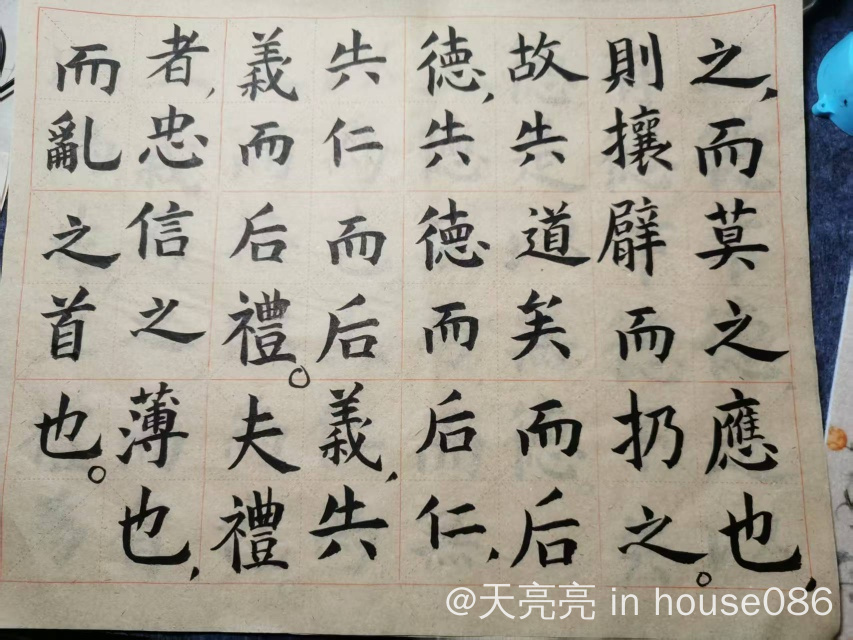 之，而莫之應也，
則攘臂而扔之。
故失道矣而后
德，失德而后仁，
失仁而后義，失
義而后禮。夫禮
者，忠信之薄也，
而亂之首也。
@天亮亮 in house086